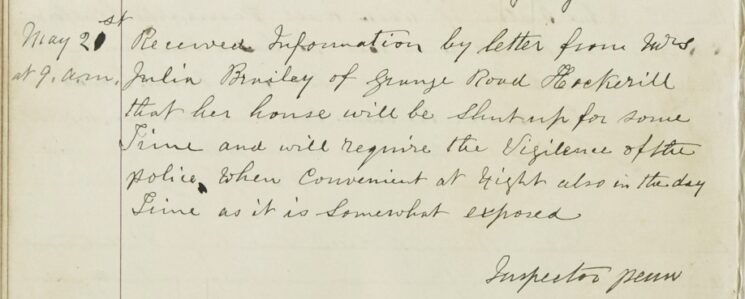 May 21st Received Information by letter from Mrs.
at 9. a.m. Julia Brasley of Grange Road Hockerill
that her house will be Shut up for some
Time and will require the Vigilence of the
police. When Convenient at Night also in the day
Time as it is Somewhat exposed
Inspector Penn